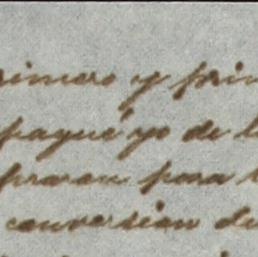 rimero y prin
pagué yo de l
praran para
conversion de